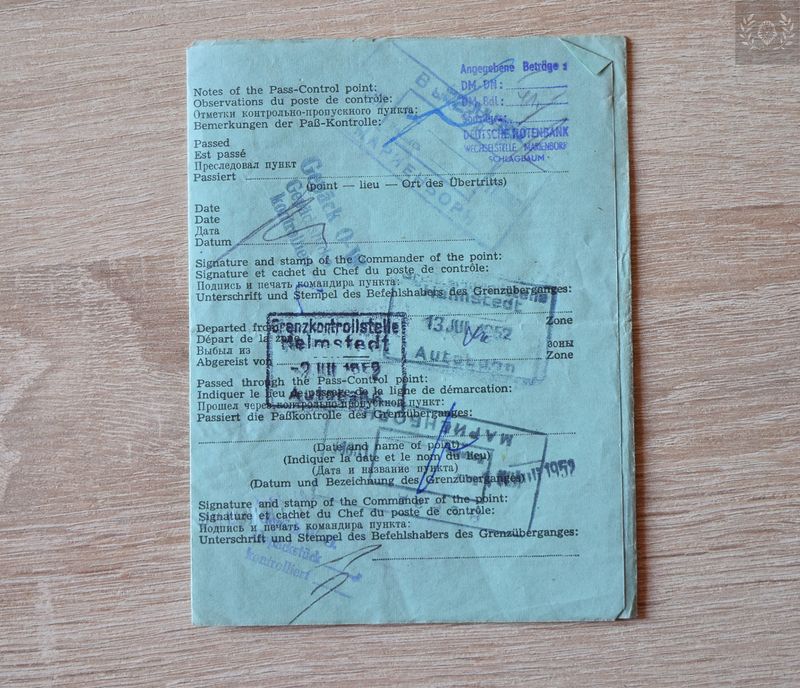 Notes of the Pass-Control point:
Observations du poste de contrôle:
Отметки контрольно-пропускного пункта:
Bemerkungen der Paß-Kontrolle:
Angegebene Beträge:
DM-DN:
DM-Bdl:
DEUTSCHE NOTENBANK
WECHSELSTELLE MARIENBORN
SCHLAGBAUM
Passed
Est passé
Преследовал пункт
Passiert
(point — lieu — Ort des Übertritts)
Gepäck
kontrolliert
Date
Date
Дата
Datum
Signature and stamp of the Commander of the point:
Signature et cachet du Chef du poste de contrôle:
Подпись и печать командира пункта:
Unterschrift und Stempel des Befehlshabers des Grenzüberganges:
Helmstedt
13 JUL 1952
Autobahn
Departed from Zone
Départ de la
Выбыл из зоны
Abgereist von Zone
Grenzkontrollstelle
Helmstedt
-2 JUL 1952
Autobahn
Passed through the Pass-Control point:
Indiquer le lieu de passage de la ligne de démarcation:
Прошел через контрольно-пропускной пункт:
Passiert die Paßkontrolle des Grenzüberganges:
МАРИЕНБОРН
1952
(Date and name of point)
(Indiquer la date et le nom du lieu)
(Дата и название пункта)
(Datum und Bezeichnung des Grenzüberganges)
Signature and stamp of the Commander of the point:
Signature et cachet du Chef du poste de contrôle:
Подпись и печать командира пункта:
Unterschrift und Stempel des Befehlshabers des Grenzüberganges:
kontrolliert